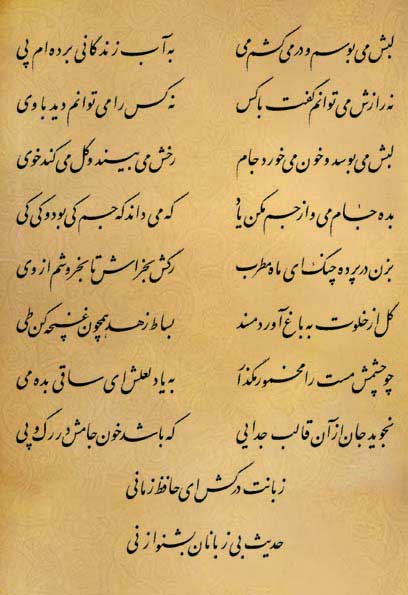 لبش می بوسم و در می کشم می به آب زندگانی برده ام پی
نه رازش می توانم گفت با کس نه کس را می توانم دید با وی
لبش می بوسد و خون می خورد جام رخش می بیند و گل می کند خوی
بده جام می و از جم مکن یاد که می داند که جم کی بود و کی کی
بزن در پرده چنگ ای ماه مطرب رگش بخراش تا بخروشم از وی
گل از خلوت به باغ آورد مسند بساط زهد همچون غنچه کن طی
چو چشمش مست را مخمور مگذار به یاد لعلش ای ساقی بده می
نجوید جان از آن قالب جدایی که باشد خون جامش در رگ و پی
زبانت درکش ای حافظ زمانی
حدیث بی زبانان بشنو از نی